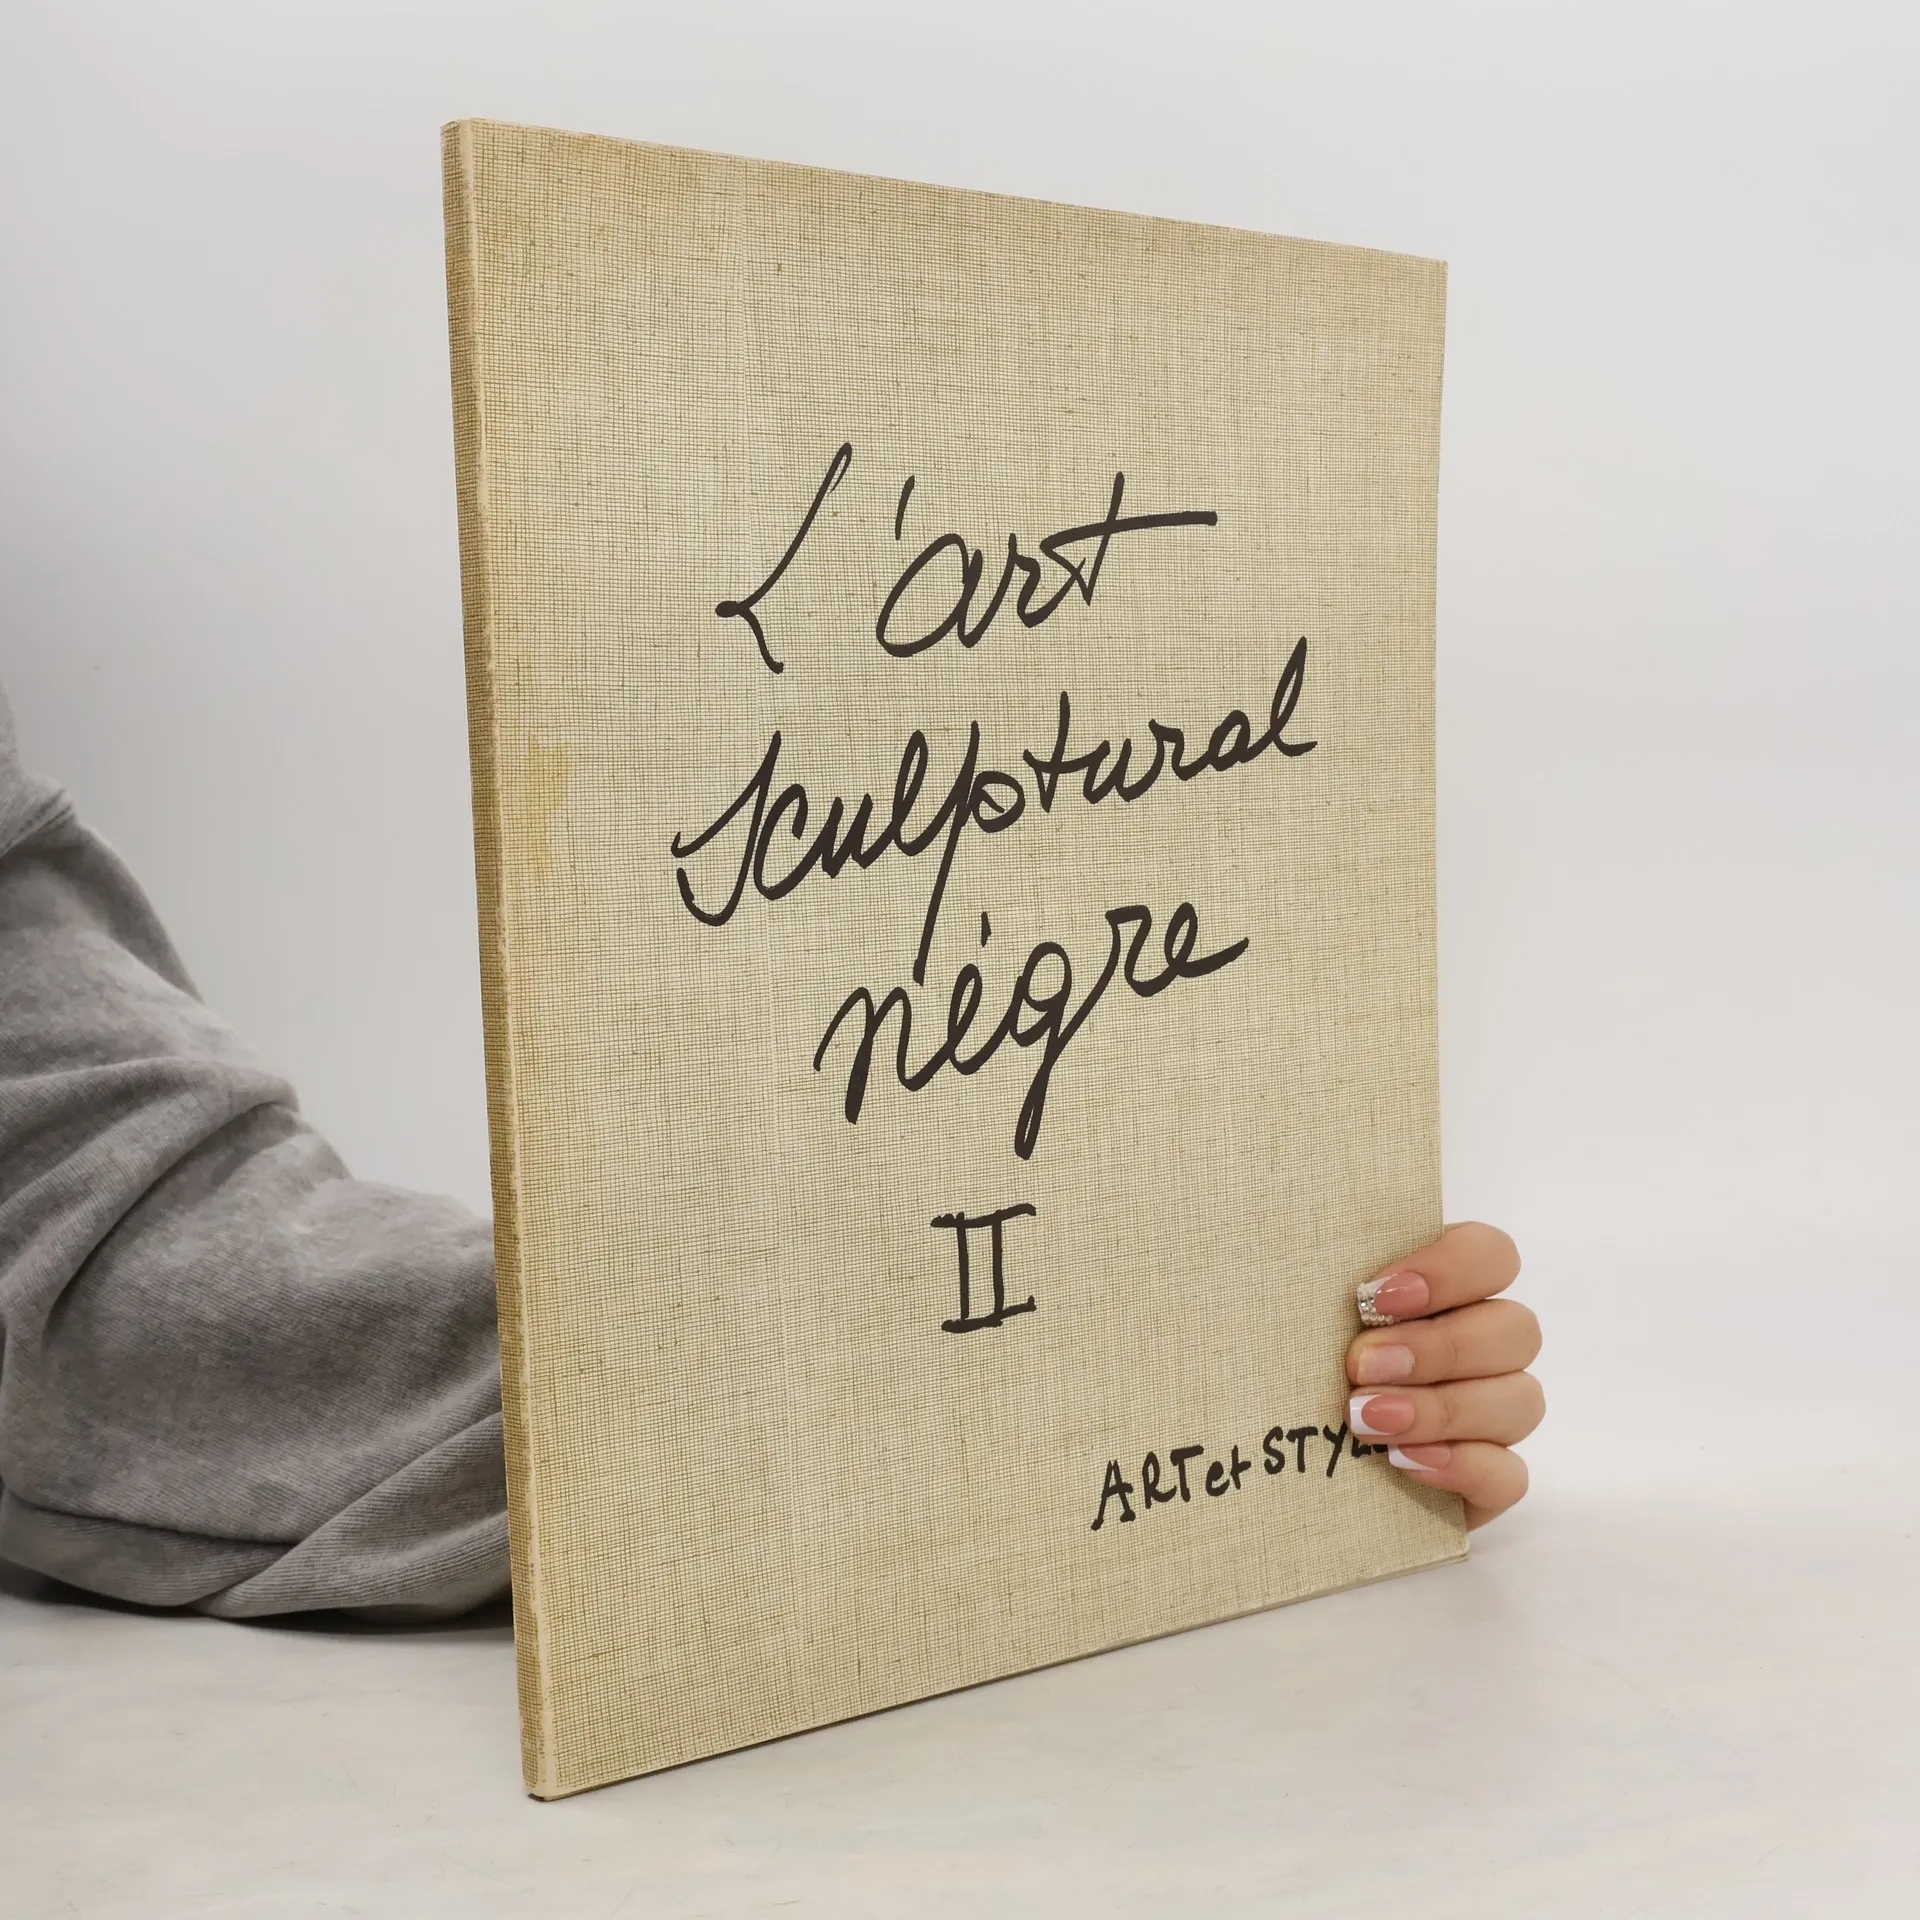 L'art
sculptural
nègre
II
ART et STYLE